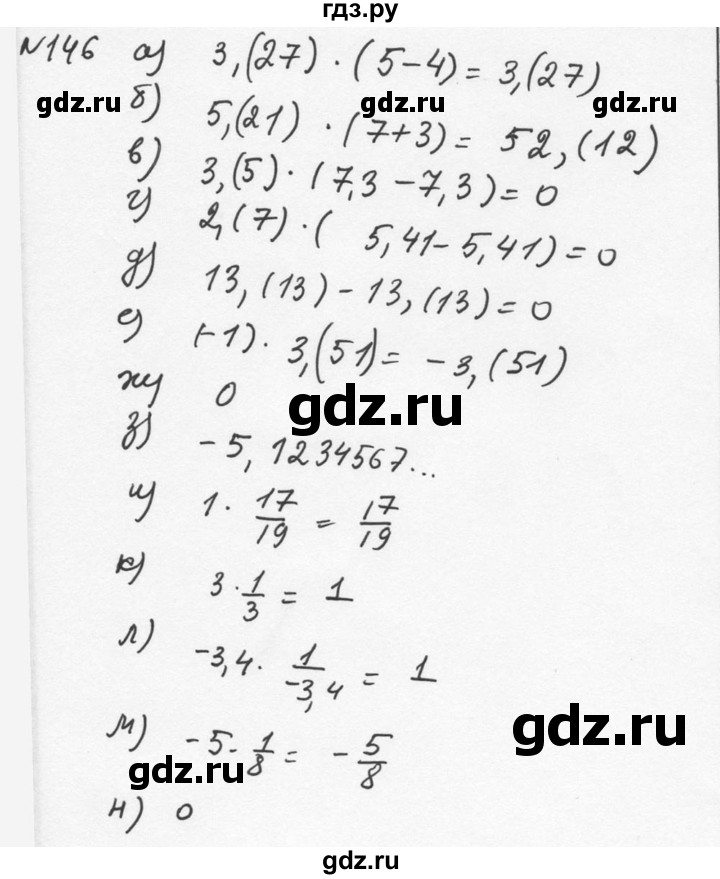 гдз.ру
№146 а) 3,(27) · (5-4) = 3,(27)
gdz.ru gdz.ru
б) 5,(21) · (7+3) = 52,(12)
в) 3,(5) · (7,3 - 7,3) = 0
г) 2,(7) · ( 5,41 - 5,41) = 0
д) 13,(13) - 13,(13) = 0
е) (-1) · 3,(51) = -3,(51)
ж) 0
gdz.ru gdz.ru
з) -5,1234567...
и) 1 · 17/19 = 17/19
к) 3 · 1/3 = 1
л) -3,4 · 1/-3,4 = 1
gdz.ru
м) -5 · 1/8 = - 5/8
gdz.ru
н) 0
gdz.ru